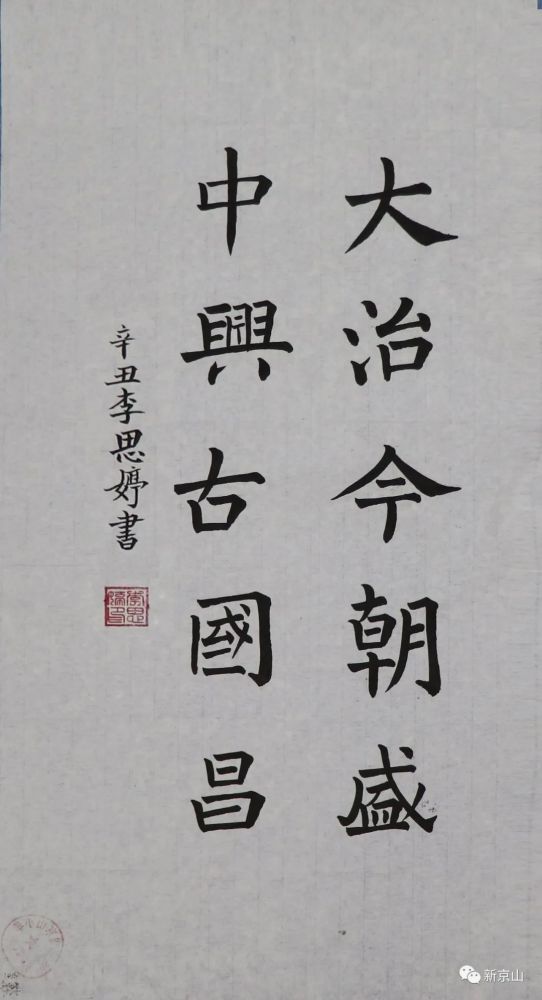 大治今朝盛
中興古國昌
辛丑李思婷書
新京山